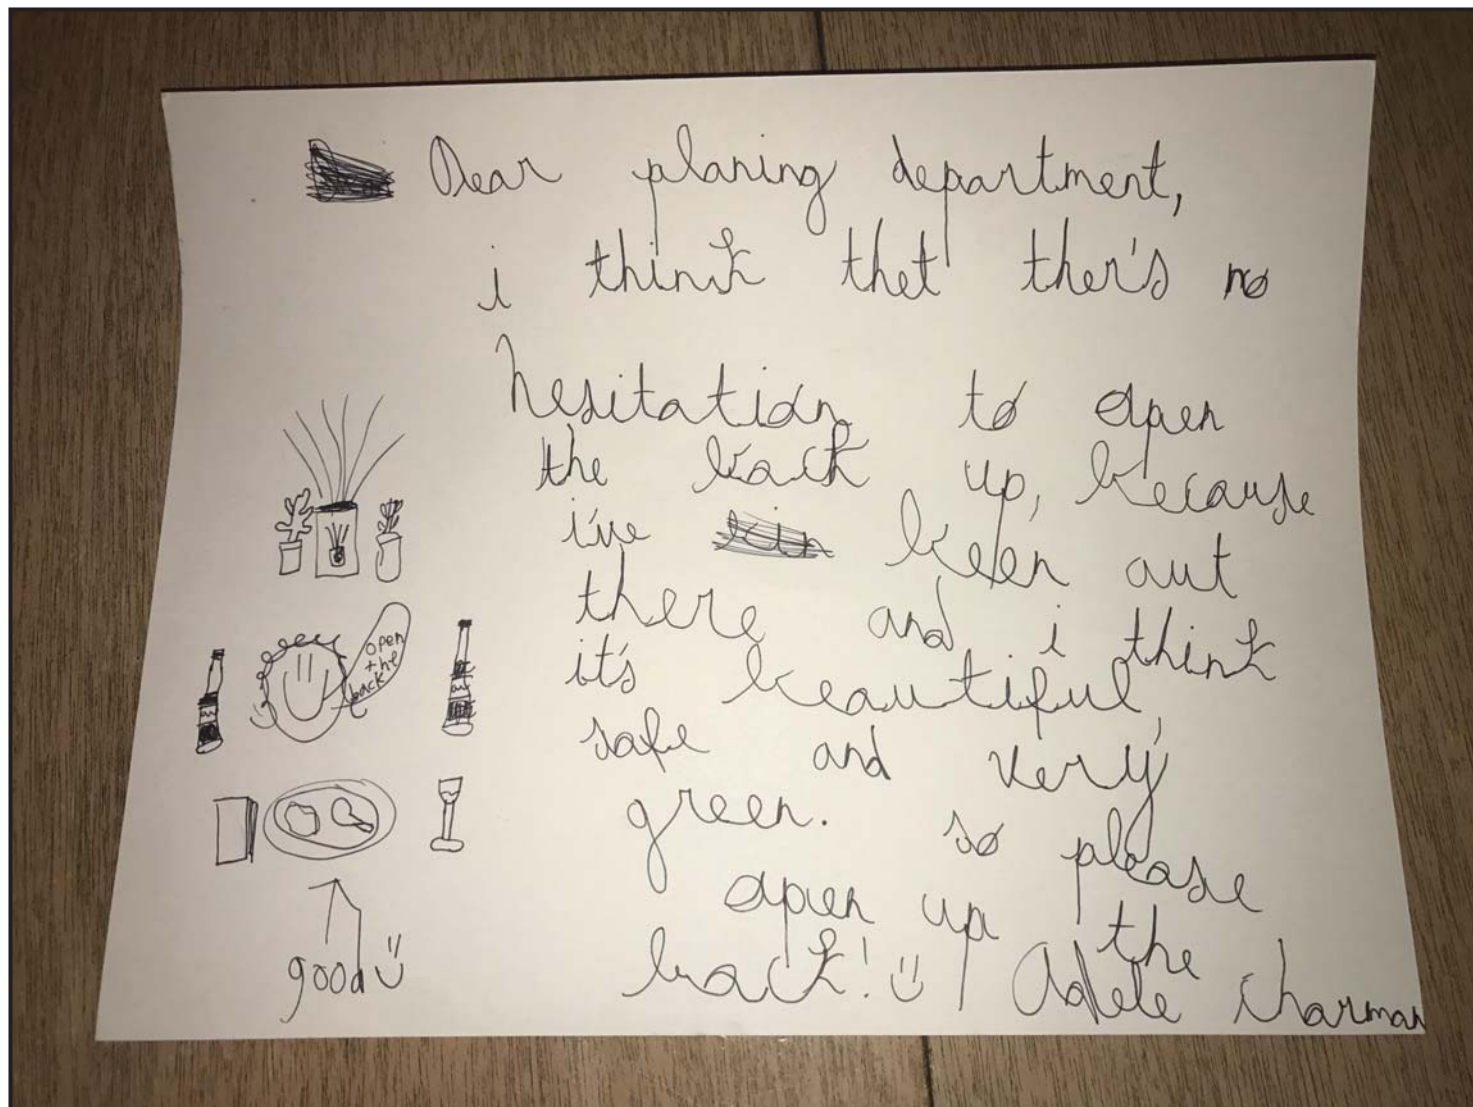 Dear planing department,
i think thet ther's no
hesitation to open
the back up, because
i've been out
there and i think
it's beautiful,
safe and very
green. so please
open up the
back! Adele Charman
open
the
back
good